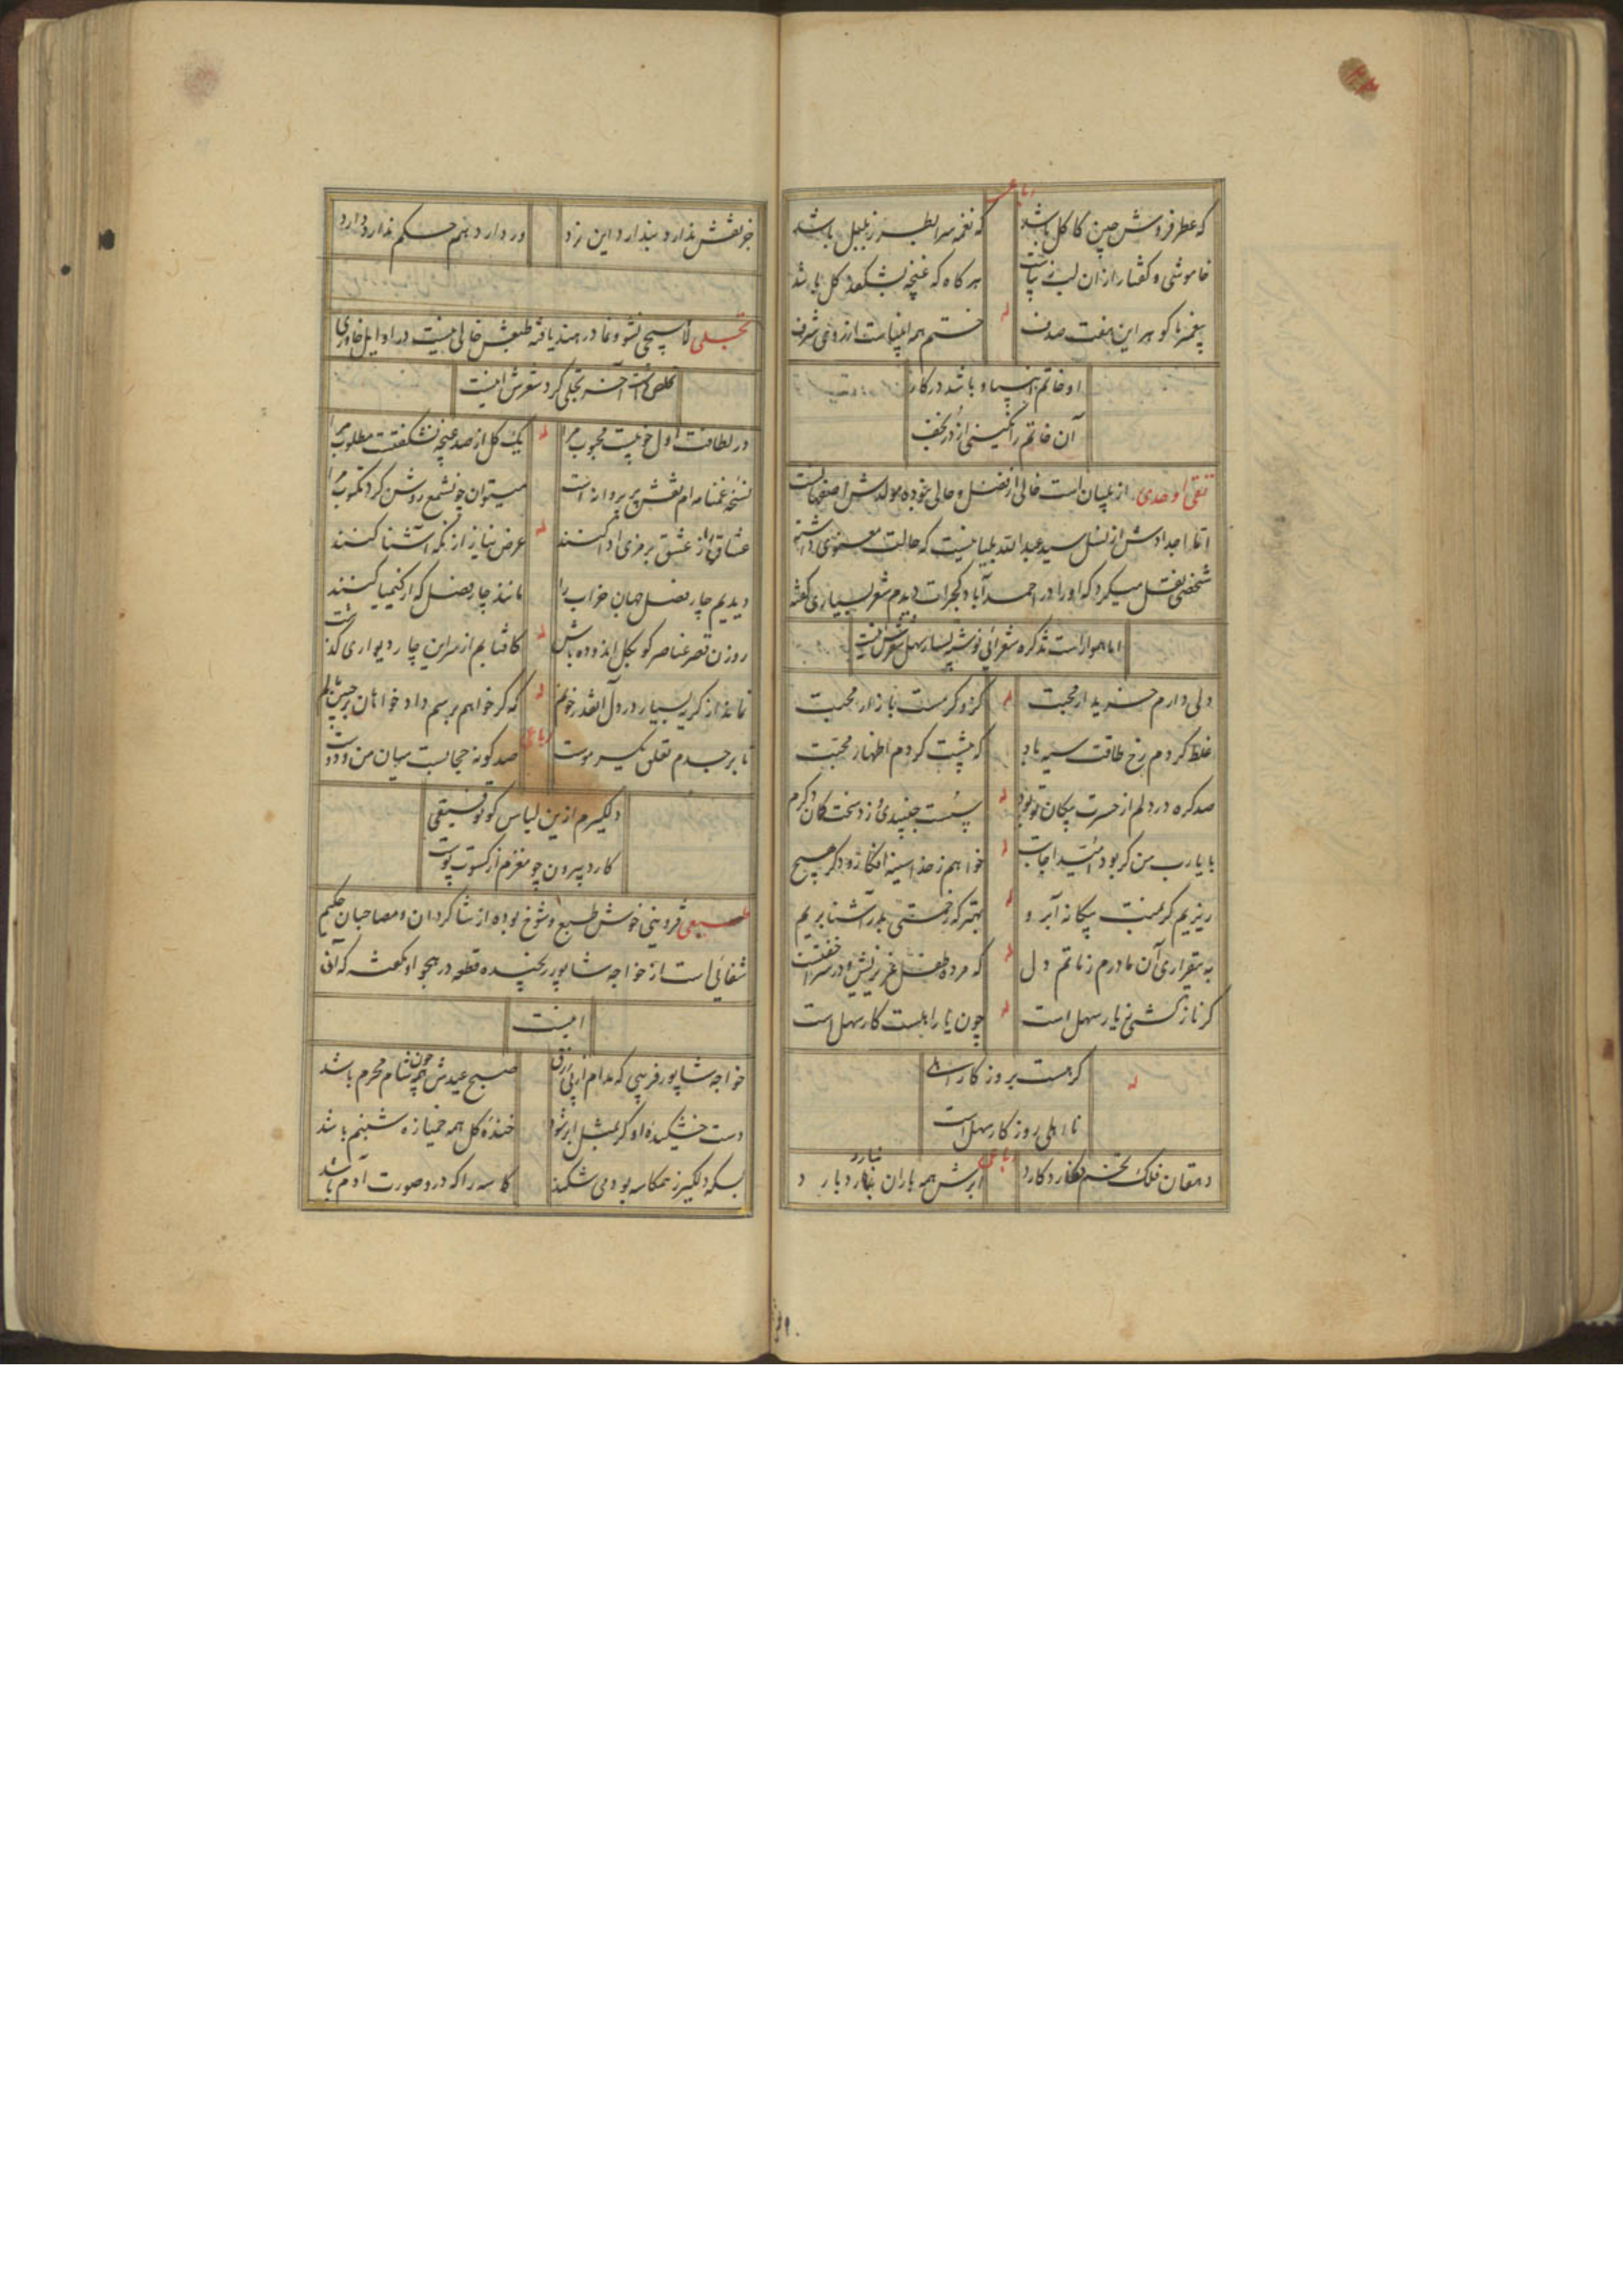 رباعی
که عطر فروش چین کاکل باشد که نغمه سرا لطرز بلبل باشد
خاموشی و گفتار ازان لب زیباست هرگاه که غنچه بشکفد گل باشد
پیغمبر ما گوهر این هفت صدف له ختم همه انبیاست از روی شرف
او خاتم انبیا و باشد در کار
آن خاتم را نگینی از در نجف
تقی اوحدی از بلیان است خالی از فضل و حالی نبوده مولدش اصفهانست
اما اجدادش از نسل سید عبدالله بلیانیست که حالت معنوی داشته
شخصی نقل میکرد که او را در احمدآباد گجرات دیدم شعر بسیاری گفته
اما هموار است تذکره شعرائی نوشته بسیار سهل شعرش اینست
دلی دارم خریدار محبت له کزو گرمست بازار محبت
غلط کردم رخ طاقت سیه باد که پیشت کردم اظهار محبت
صد گره در دلم از حسرت پیکان تو بود له سست جنبیدی و زد سخت کمان دگرم
با یارب من گر بود امید اجابت له خواهم ز خدا سینه افکار و دگر هیچ
ریزیم گر بمنت بیگانه آبرو له بهتر که زحمتی بدر آشنا بریم
به بیقراری آن مادرم ز ماتم دل له که مرده طفل عزیزیش و در سرا خفتست
گر ناز کشی ز یار سهل است له چون یار اهلست کار سهل است
له گر هست بروزگار اهلی
نا اهلی روزگار سهل است
رباعی
دهقان فلک تخم نکارد کارد ابرش همه باران نبارد بارد
نبارد
جز نقش ندارد بندارد این نرد ور دارد هم حکم ندارد دارد
تجلی لاسیجی نشو و نما در هند یافته طبعش خالی نیست در اوایل خاوری
تخلص داشت آخر تجلی کرد شعرش اینست
در لطافت اول خوبیست محبوب مرا له یک گل از صد غنچه نشکفتست مطلوب مرا
نسخه غمنامه ام نقش پر پروانه است میتوان چون شمع روشن کرد مکتوب مرا
عشاق راز عشق برمزی ادا کنند له عرض نیاز از نگه آشنا کنند
دیدیم چار فصل جهان خراب را مانند چار فصل که از کیمیا کنند
روزن قصر عناصر گو بگل اندوده باش له کافتابم از سر این چار دیواری گذشت
نماند از گریه بسیار در دل آنقدر خونم له که گر خواهم برسم داد خواهان بر جبین مالم
رباعی
تا بر جسدم تعلق یکسر موست صد گونه حجابست میان من و دوست
دلگیرم ازین لباس کو توفیقی
کارد بیرون چو مغزم از کسوت پوست
طبیعی قزوینی خوش طبع و شوخ بوده از شاگردان و مصاحبان حکیم
شفائی است از خواجه شاپور رنجیده قطعه در هجو او گفته که آن
اینست
خواجه شاپور فریبی که مدام از پی رزق صبح عیدش همه چون شام محرم باشد
دست خشکیده او گر بمثل ابر شود خنده گل همه خمیازه شبنم باشد
بسکه دلگیر ز همکاسه بود می شکند کاسه را که درو صورت آدم باشد